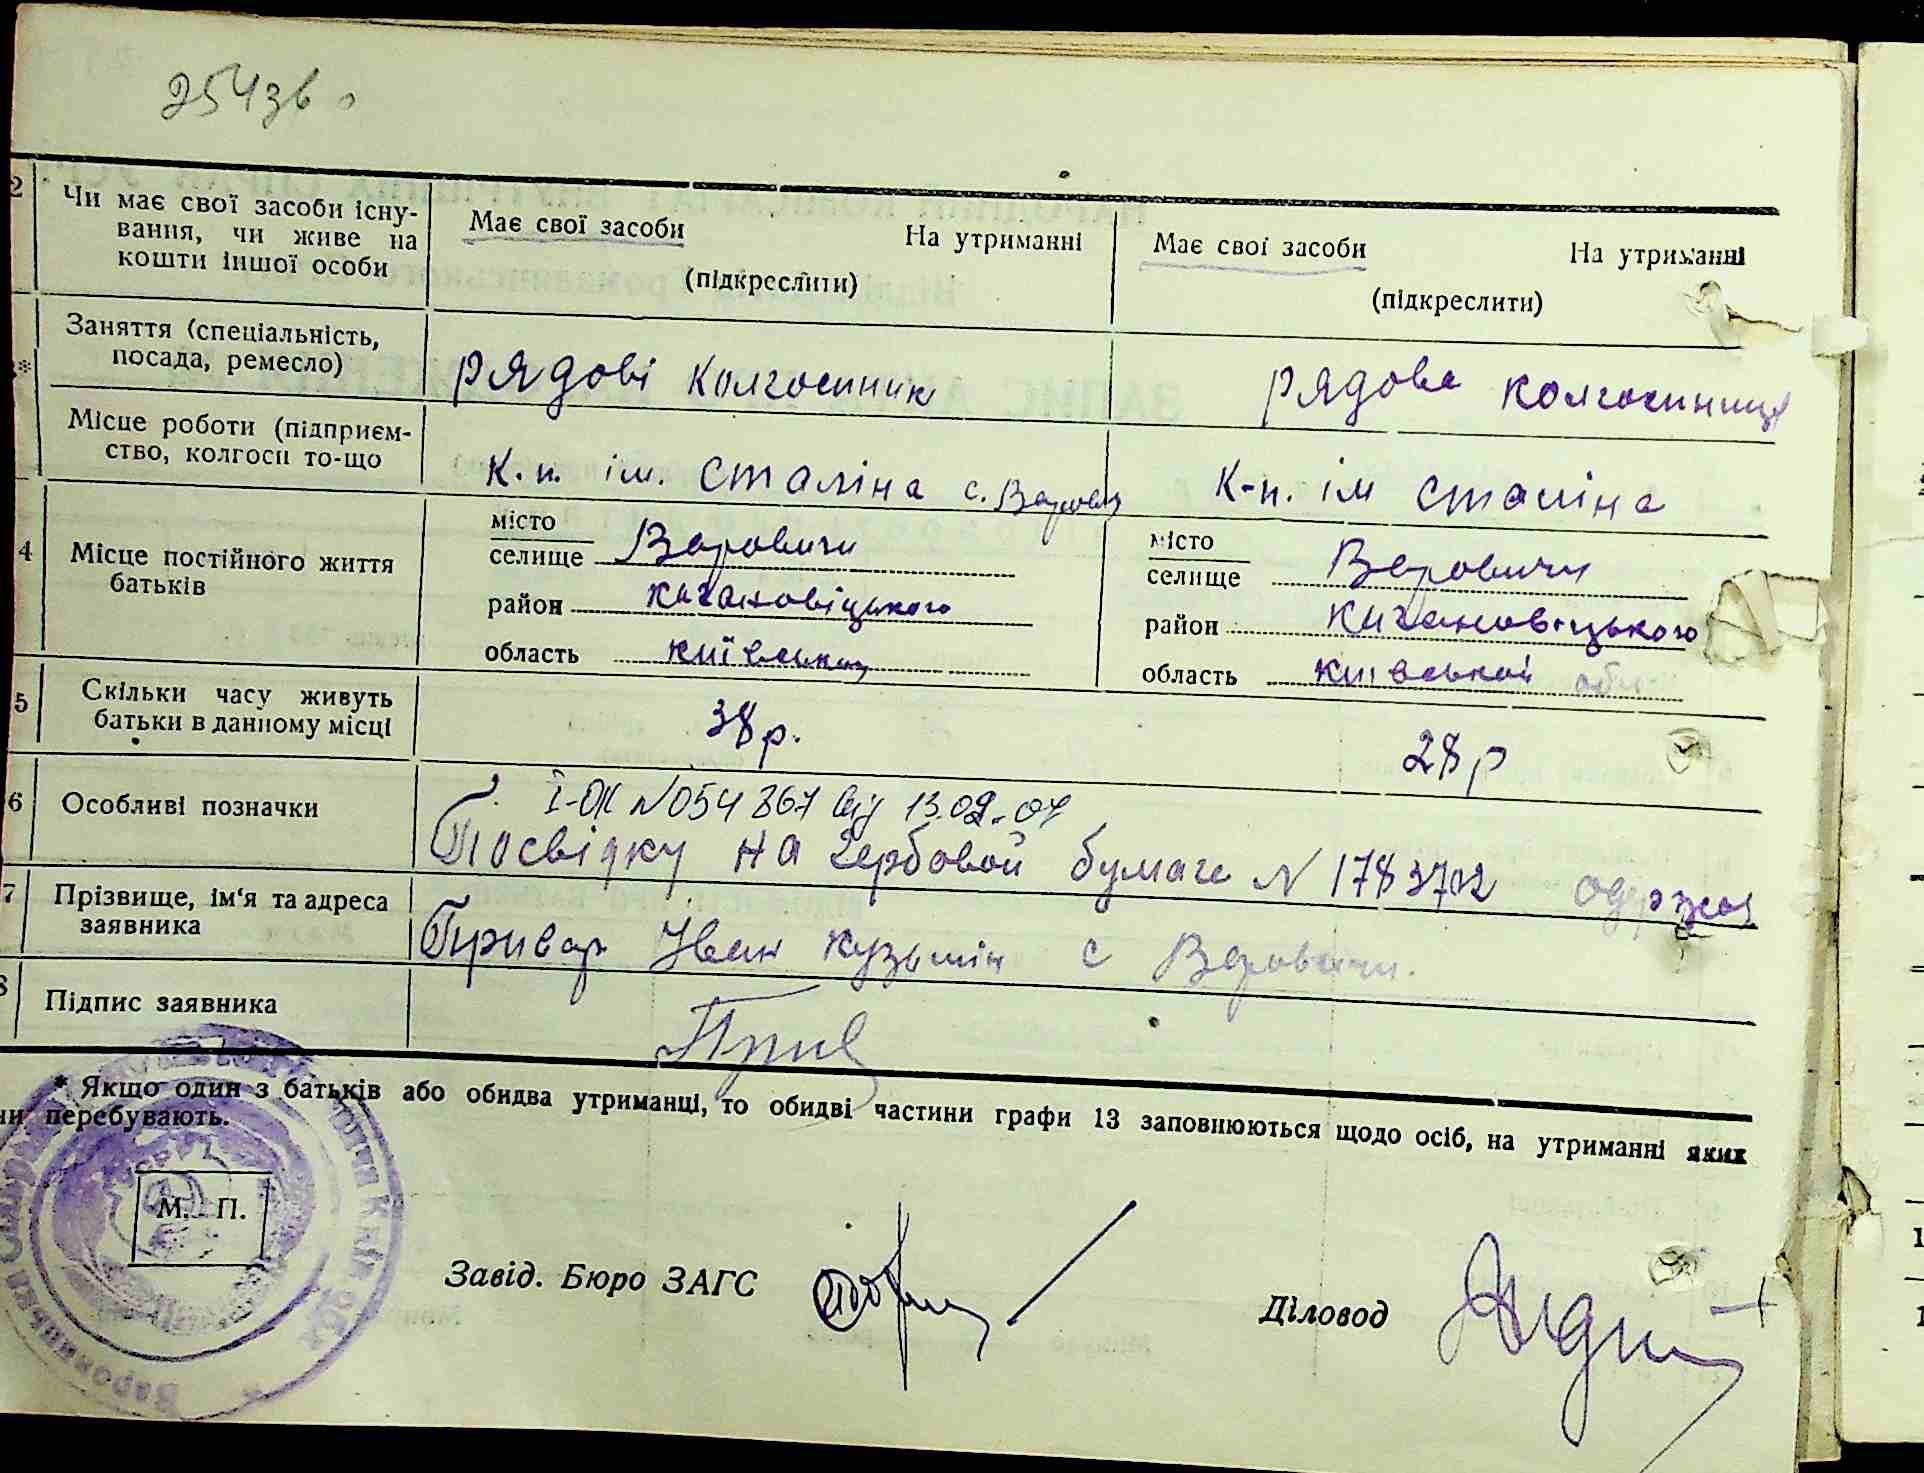 254зв
2 Чи має свої засоби існу-
вання, чи живе на
кошти іншої особи
Має свої засоби На утриманні
(підкреслити)
Має свої засоби На утриманні
(підкреслити)
* Заняття (спеціальність,
посада, ремесло)
рядові колгоспник
рядова колгоспниця
Місце роботи (підприєм-
ство, колгосп то-що
к.п. ім. Сталіна с. Варовичі
к-п. ім Сталіна
4 Місце постійного життя
батьків
місто
селище Варовичи
район кагановіцького
область київська
місто
селище Варовичи
район кагановіцького
область київській обл
5 Скільки часу живуть
батьки в данному місці
38 р.
28 р
6 Особливі позначки
І-ОК №054867 від 13.02.04
Посвідку на гербовой бумаге N 1783702 одержав
7 Прізвище, ім'я та адреса
заявника
Привар Іван Кузьмін с Варовичи.
8 Підпис заявника
Прив
* Якщо один з батьків або обидва утриманці, то обидві частини графи 13 заповнюються щодо осіб, на утриманні яких
ни перебувають.
М. П.
Завід. Бюро ЗАГС
Діловод